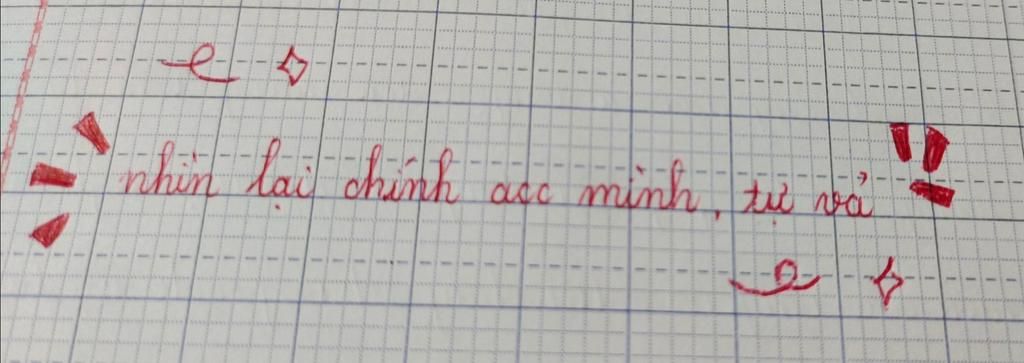 nhìn lại chính acc mình, tự vả